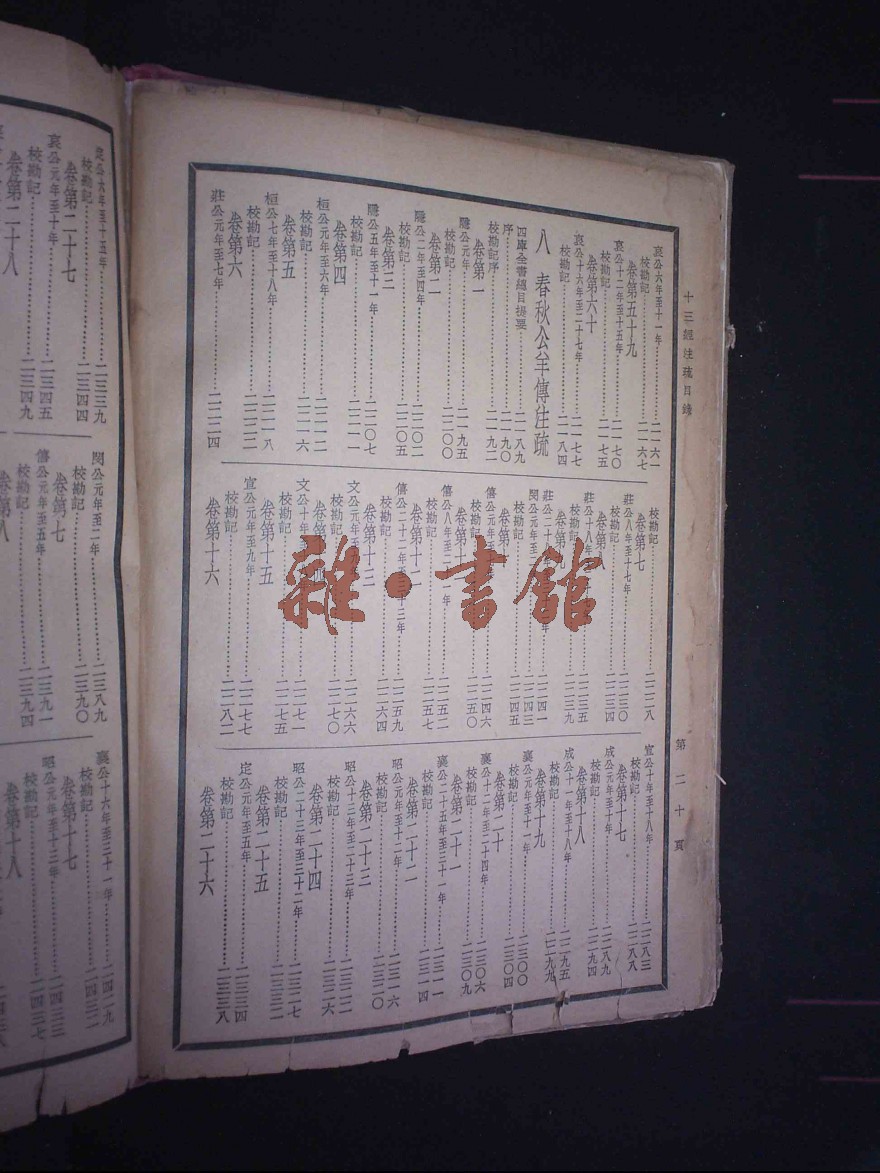 十三經注疏目錄
第二十頁
哀公六年至十一年……二一六一
校勘記……二一六七
卷第五十九
哀公十二年至十五年……二一七〇
校勘記……二一七五
卷第六十
哀公十六年至二十七年……二一七七
校勘記……二一八四
八 春秋公羊傳注疏
四庫全書總目提要……二一八九
序……二一九〇
校勘記序……二一九二
卷第一
隱公元年……二一九五
校勘記……二二〇〇
卷第二
隱公二年至四年……二二〇二
校勘記……二二〇五
卷第三
隱公五年至十一年……二二〇七
校勘記……二二一一
卷第四
桓公元年至六年……二二一二
校勘記……二二一六
卷第五
桓公七年至十八年……二二一八
校勘記……二二二二
卷第六
莊公元年至七年……二二二四
校勘記……二二二八
卷第七
莊公八年至十七年……二二三〇
校勘記……二二三四
卷第八
莊公十八年……二二三五
校勘記……二二三九
卷第九
莊公二十……年……二二四一
閔公元年至二……二二四三
校勘記……二二四五
卷第十
僖公元年至……二二四六
校勘記……二二五〇
卷第十一
僖公八年至二十一年……二二五二
校勘記……二二五七
卷第十二
僖公二十二年至三十三年……二二五九
校勘記……二二六四
卷第十三
文公元年至……二二六六
校勘記……二二七〇
卷第十四
文公十年……二二七一
校勘記……二二七五
卷第十五
宣公元年至九年……二二七七
校勘記……二二八二
卷第十六
宣公十年至十八年……二二八三
校勘記……二二八八
卷第十七
成公元年至十年……二二八九
校勘記……二二九四
卷第十八
成公十一年至十八年……二二九五
校勘記……二二九九
卷第十九
襄公元年至十一年……二三〇〇
校勘記……二三〇四
卷第二十
襄公十二年至二十四年……二三〇六
校勘記……二三〇九
卷第二十一
襄公二十五年至三十一年……二三一一
校勘記……二三一四
卷第二十二
昭公元年至十二年……二三一六
校勘記……二三二〇
卷第二十三
昭公十三年至二十三年……二三二二
校勘記……二三二六
卷第二十四
昭公二十三年至三十二年……二三二七
校勘記……二三三二
卷第二十五
定公元年至五年……二三三四
校勘記……二三三八
卷第二十六
定公六年至十五年……二三三九
校勘記……二三四四
卷第二十七
哀公元年至十年……二三四五
校勘記……二三四九
卷第二十八
閔公元年至二年……二三八九
校勘記……二三九〇
卷第七
僖公元年至五年……二三九一
校勘記……二三九四
卷第八
襄公十六年至三十一年……二四二九
校勘記……二四三二
卷第十七
昭公元年至十三年……二四三三
校勘記……二四三七
卷第十八
雜·書館